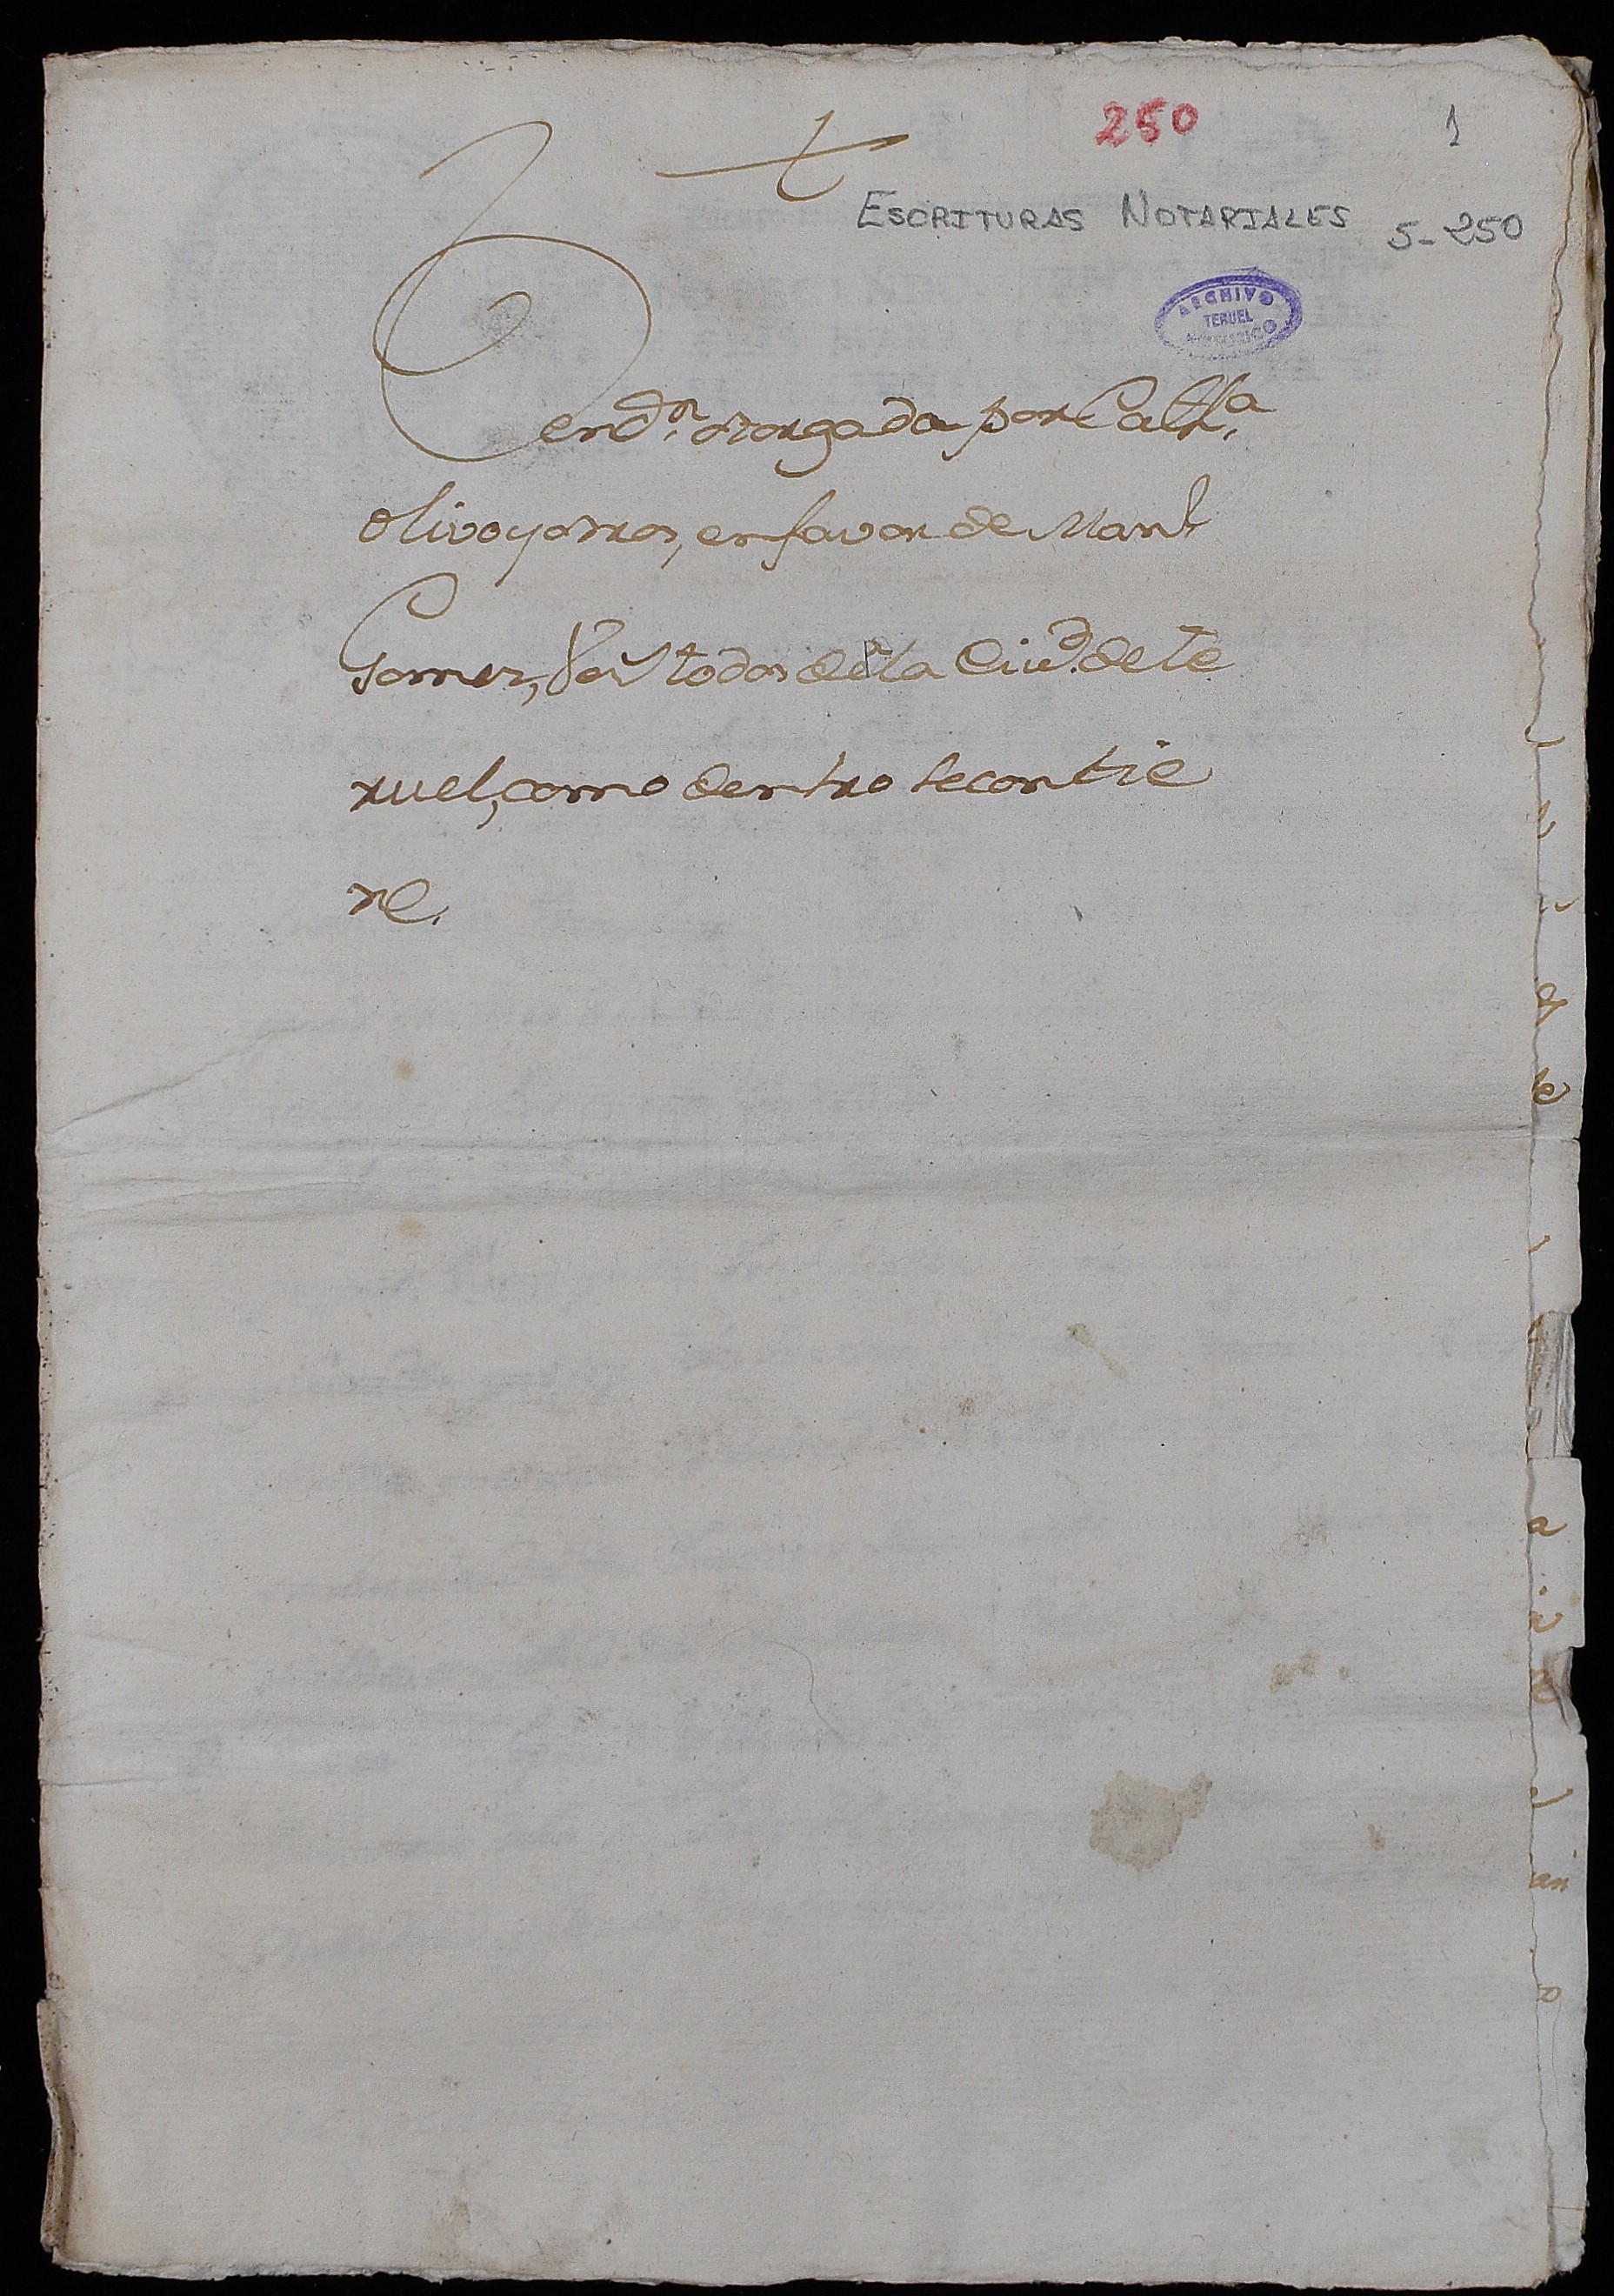 250
1
ESCRITURAS NOTARIALES 5-250
ARCHIVO
TERUEL
HISTORICO
Vend.on otorgada por Cath.a
Olivo y otros, en favor de Man.l
Gomez, Vez.s todos de la Ciud.d de Te
ruel, como dentro se contie
ne.